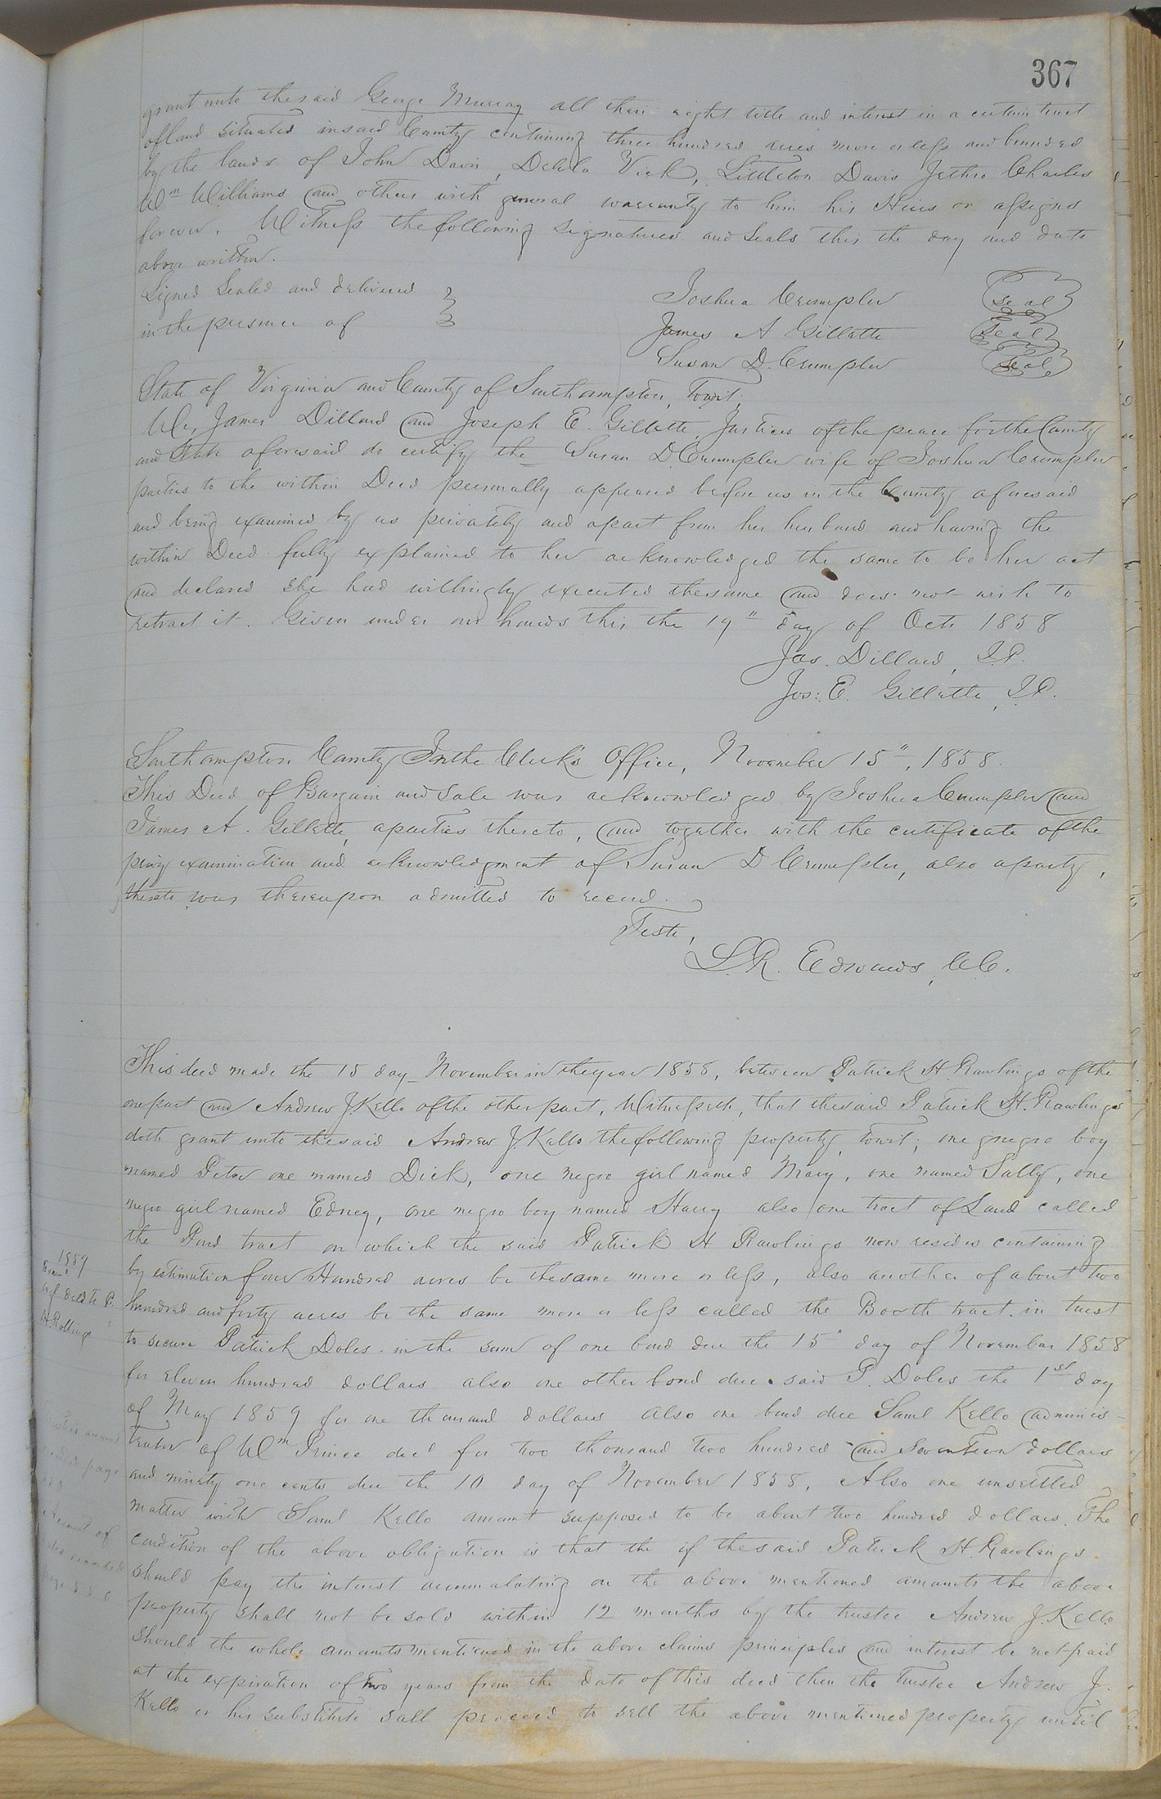 367
grant unto the said George Murray all their right title and interest in a certain tract
of land situated in said County containing three hundred acres more or less and bounded
by the lands of John Davis, Delila Vick, Littleton Davis Jethro Charles
Wm Williams and others with general warranty to him his Heirs or assigns
forever. Witness the following signatures and seals this the day and date
above written.
Signed Sealed and delivered
in the presence of
Joshua Crumpler seal
James A Gillette seal
Susan D. Crumpler seal
State of Virginia and County of Southampton, Towit,
We, James Dillard and Joseph E. Gillette, Justices of the peace for the County
and State aforesaid do certify the Susan D. Crumpler wife of Joshua Crumpler
parties to the within Deed personally appeared before us in the County aforesaid
and being examined by us privately and apart from her husband and having the
within Deed fully explained to her acknowledged the same to be her act
and declared she had willingly executed the same and does not wish to
retract it. Given under our hands this the 19" day of Oct. 1858
Jas. Dillard, J.P.
Jos: E. Gillette, J.P.
Southampton County In the Clerk's Office, November 15", 1858.
This Deed of Bargain and Sale was acknowledged by Joshua Crumpler and
James A. Gillette, aparties thereto, and together with the certificate of the
privy examination and acknowledgment of Susan D Crumpler, also a party,
thereto was thereupon admitted to record.
Teste,
L.R. Edwards, C.C.
This deed made the 15 day November in the year 1858, between Patrick H. Rawlings of the
one part and Andrew J. Kello of the other part, Witnesseth, that the said Patrick H. Rawlings
doth grant unto the said Andrew J. Kello the following property, towit; one negro boy
named Peter one named Dick, one negro girl named Mary, one named Sally, one
negro girl named Edney, one negro boy named Harry also one tract of Land called
the Pond tract on which the said Patrick H Rawlings now resides containing
by estimation four Hundred acres be the same more or less, also another of about two
hundred and forty acres be the same more or less called the Booth tract. in trust
to secure Patrick Doles in the sum of one bond due the 15" day of November 1858
for eleven hundred dollars also one other bond due said P. Doles the 1st day
of May 1859 for one thousand dollars also one bond due Saml Kello adminis-
trator of Wm Prince decd for two thousand two hundred and seventeen dollars
and ninety one cents due the 10 day of November 1858, Also one unsettled
matter with Saml Kello amount supposed to be about two hundred dollars. The
condition of the above obligation is that the if the said Patrick H Rawlings
should pay the interest accumulating on the above mentioned amounts the above
property shall not be sold within 12 months by the trustee Andrew J. Kello
should the whole amounts mentioned in the above claims principles and interest be not paid
at the expiration of two years from the date of this deed then the trustee Andrew J.
Kello or his substitute sall proceed to sell the above mentioned property until
1859